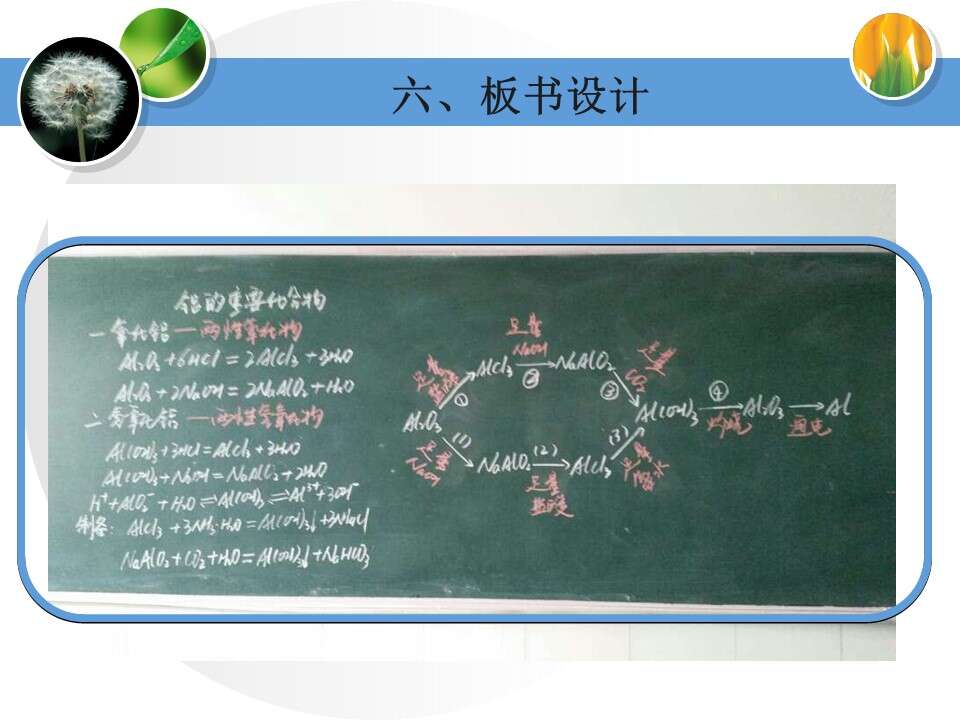 六、板书设计
铝的重要化合物
一 氧化铝 — 两性氧化物
Al₂O₃ + 6HCl = 2AlCl₃ + 3H₂O
Al₂O₃ + 2NaOH = 2NaAlO₂ + H₂O
二 氢氧化铝 — 两性氢氧化物
Al(OH)₃ + 3HCl = AlCl₃ + 3H₂O
Al(OH)₃ + NaOH = NaAlO₂ + 2H₂O
H⁺ + AlO₂⁻ + H₂O ⇌ Al(OH)₃ ⇌ Al³⁺ + 3OH⁻
制备: AlCl₃ + 3NH₃·H₂O = Al(OH)₃↓ + 3NH₄Cl
NaAlO₂ + CO₂ + H₂O = Al(OH)₃↓ + NaHCO₃
足量
NaOH
足量 盐酸
① AlCl₃ ② NaAlO₂ ③
足量 CO₂
Al₂O₃
Al(OH)₃ ④ 灼烧 Al₂O₃ 通电 Al
足量 NaOH
(1) NaAlO₂ (2) AlCl₃ (3)
足量 氨水
足量
盐酸